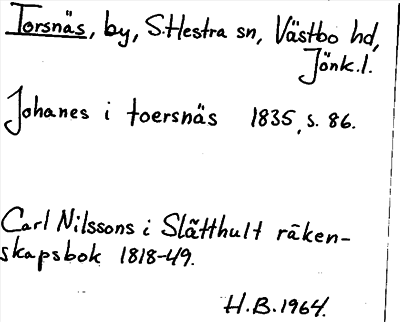 Torsnäs, by, S.Hestra sn, Västbo hd,
Jönk.l.
Johanes i toersnäs 1835, s. 86.
Carl Nilssons i Slätthult räken-
skapsbok 1818-49.
H.B.1964.